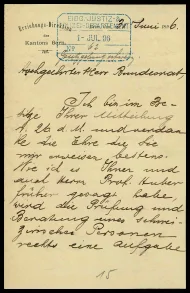 Erziehungs-Direktion
des
Kantons Bern.
EIDG. JUSTIZ-
30. Juni 1896.
1 - JUL. 96
Hochgeehrter Herr Bundesrat,
Ich bin im Be-
sitze Ihrer Mitteilung
v. 26. d. M. und verdan-
ke die Ehre, die Sie
mir erweisen bestens.
Wie ich es Ihnen und
auch Herrn Prof. Huber
früher gesagt habe
wird die Prüfung und
Beratung eines schwei-
zerischen Personen-
rechts eine Aufgabe
15